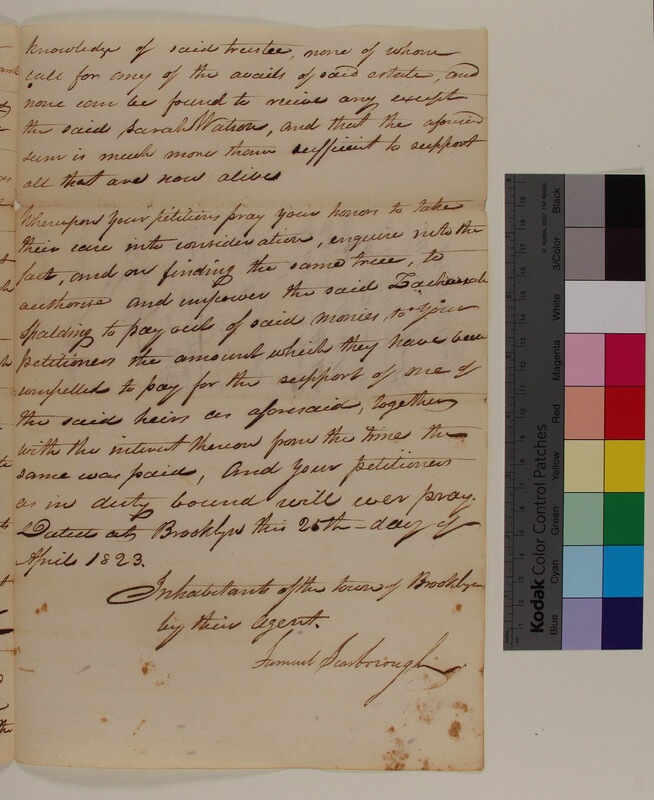 knowledge of said trustee, none of whom
call for any of the avails of said estate, and
none can be found to recieve any except
the said Sarah Watson, and that the aforesaid
sum is much more than sufficient to support
all that are now alive
Whereupon your petitioners pray your honors to take
their case into consideration, enquire into the
fact, and on finding the same true, to
authorise and empower the said Zachariah
Spalding to pay out of said monies, to your
Petitioners the amount which they have been
compelled to pay for the support of one of
the said heirs as aforesaid, together
with the interest thereon from the time the
same was paid, And your petitioners
as in duty bound will ever pray.
Dated at Brooklyn this 25th day of
April 1823.
Inhabitants of the town of Brooklyn
by their Agent.
Samuel Scarborough
Kodak Color Control Patches
Blue
Cyan
Green
Yellow
Red
Magenta
White
3/Color
Black